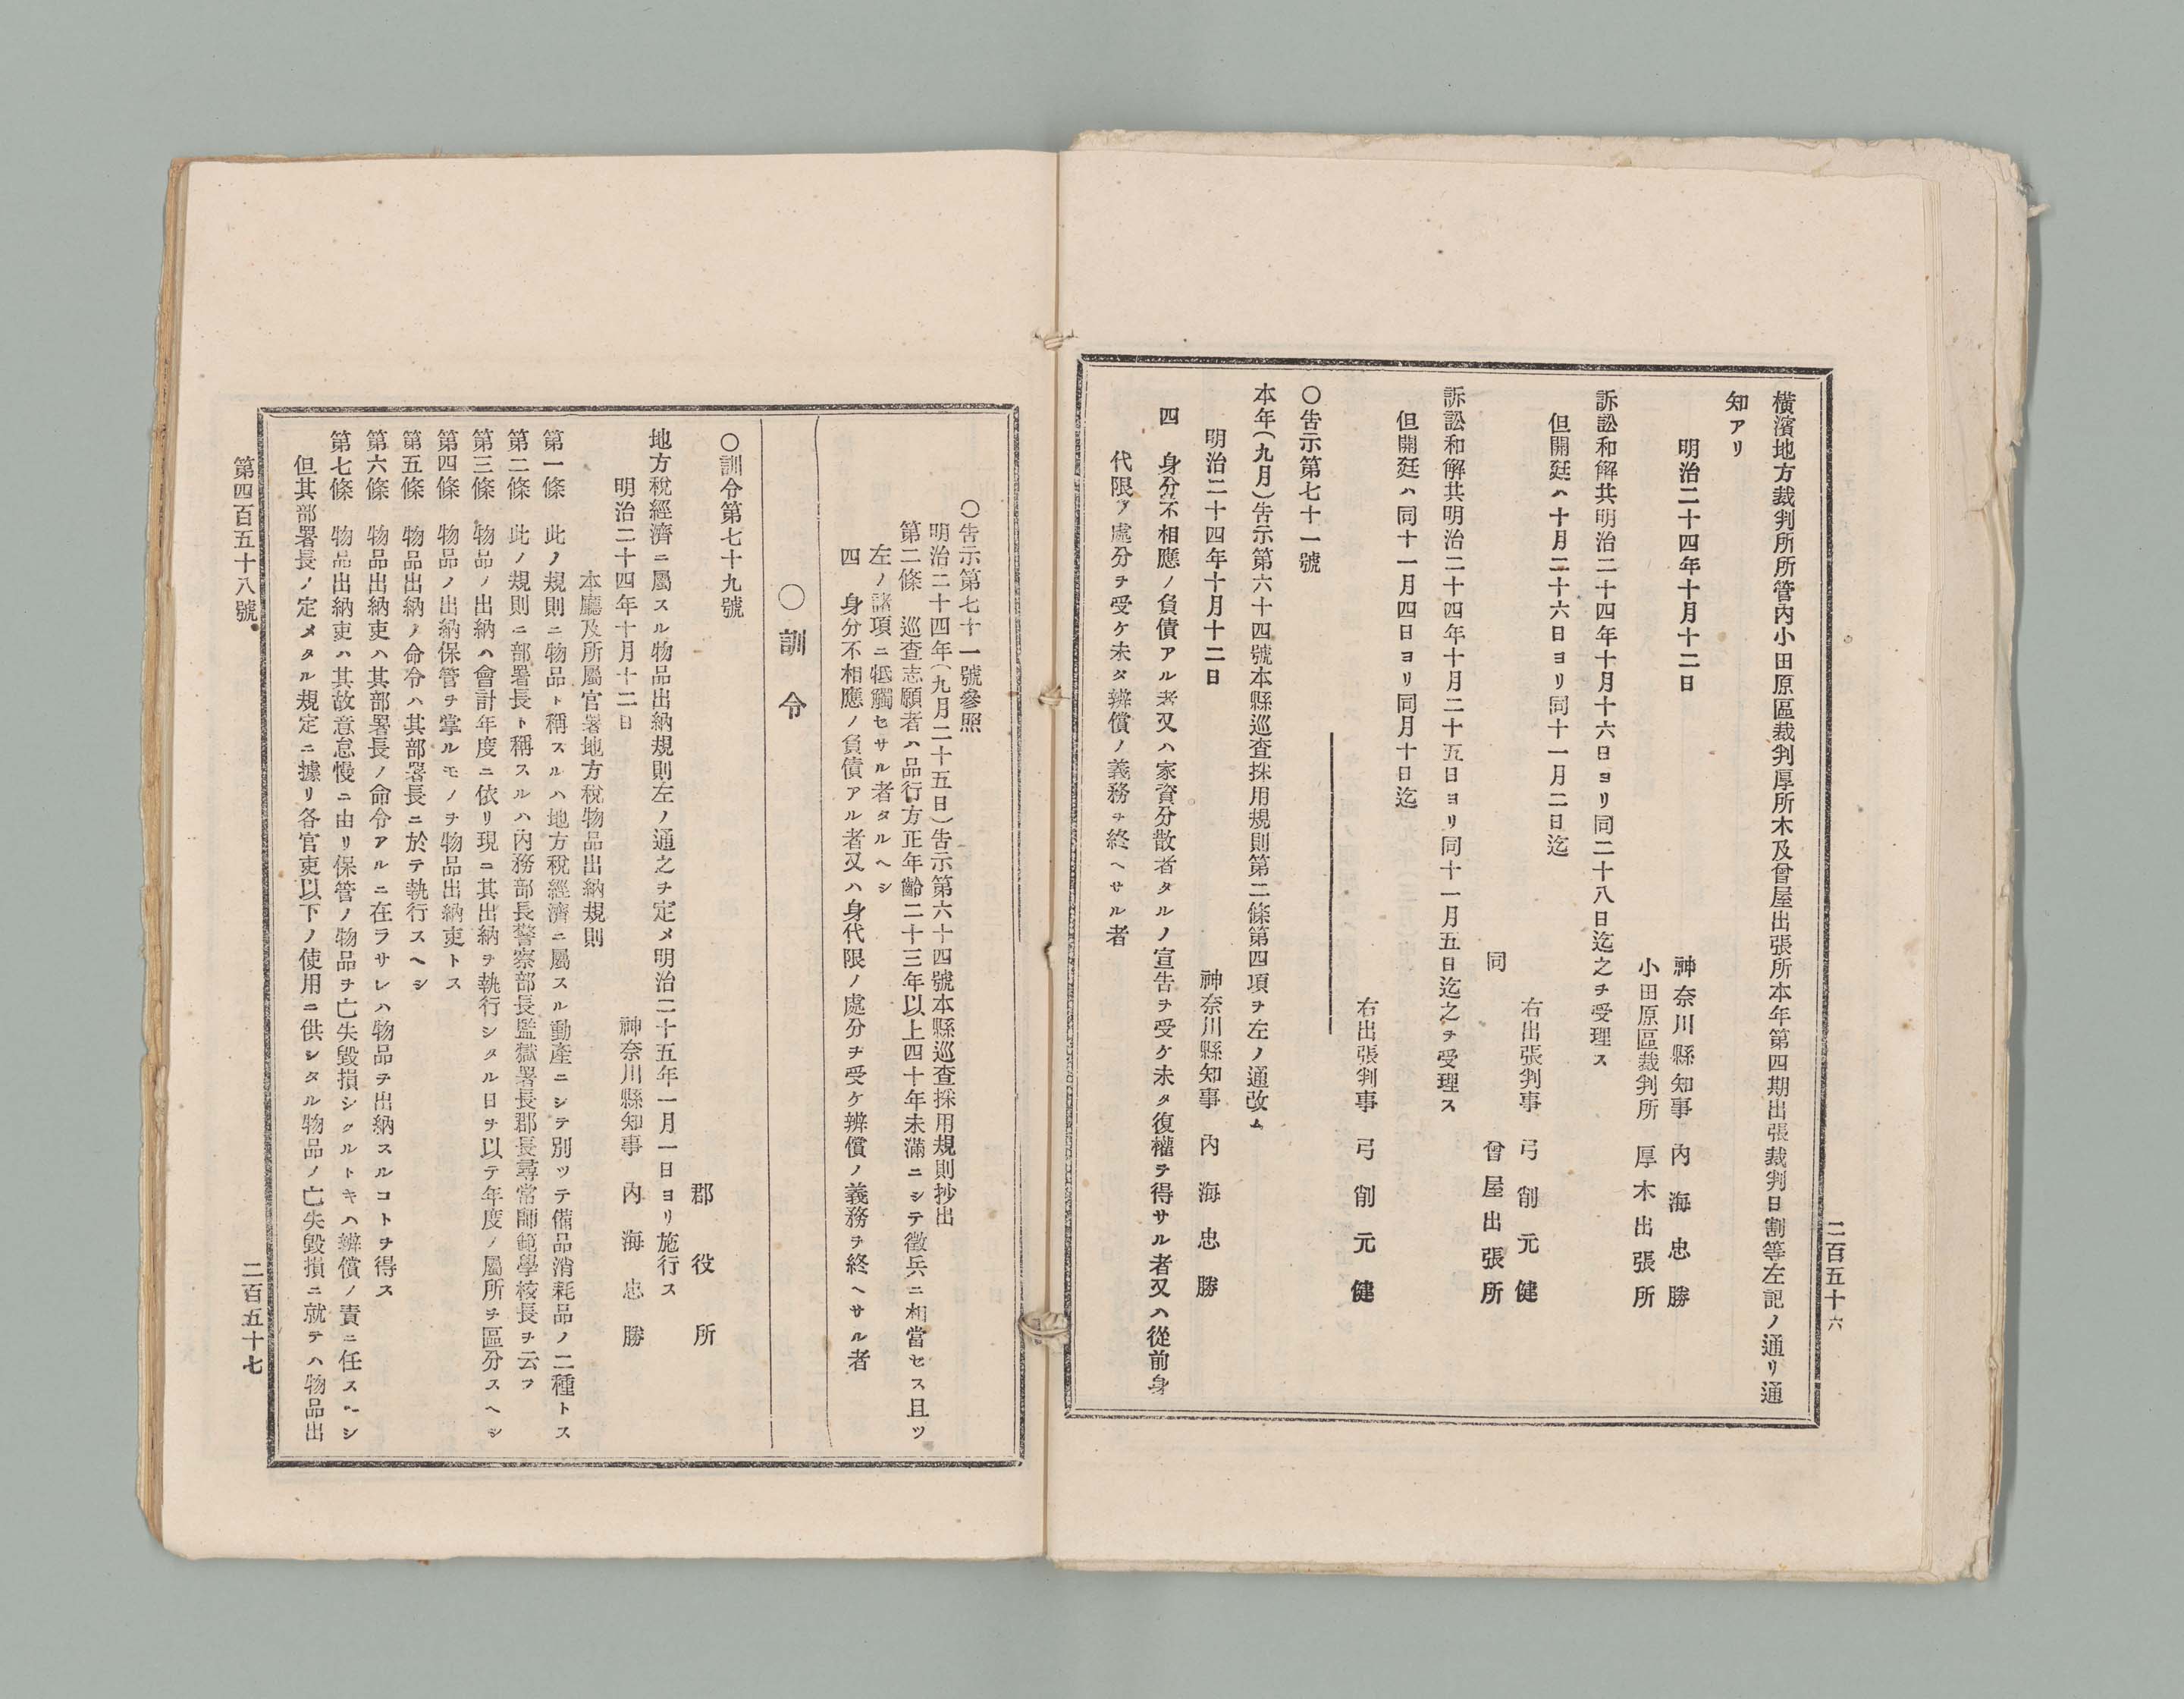 二百五十六
橫濱地方裁判所所管內小田原區裁判厚所木及曾屋出張所本年第四期出張裁判日割等左記ノ通リ通
知アリ
明治二十四年十月十二日
神奈川縣知事　內海忠勝
小田原區裁判所　厚木出張所
訴訟和解共明治二十四年十月十六日ヨリ同二十八日迄之ヲ受理ス
但開廷ハ十月二十六日ヨリ同十一月二日迄
右出張判事　弓削元健
同　曾屋出張所
訴訟和解共明治二十四年十月二十五日ヨリ同十一月五日迄之ヲ受理ス
但開廷ハ同十一月四日ヨリ同月十日迄
右出張判事　弓削元健
〇告示第七十一號
本年(九月)告示第六十四號本縣巡査採用規則第二條第四項ヲ左ノ通改ム
明治二十四年十月十二日
神奈川縣知事　內海忠勝
四　身分不相應ノ負債アル者又ハ家資分散者タルノ宣告ヲ受ケ未タ復權ヲ得サル者又ハ從前身
代限ノ處分ヲ受ケ未タ辨償ノ義務ヲ終ヘサル者
〇告示第七十一號參照
明治二十四年(九月二十五日)告示第六十四號本縣巡査採用規則抄出
第二條　巡査志願者ハ品行方正年齡二十三年以上四十年未滿ニシテ徵兵ニ相當セス且ツ
左ノ諸項ニ牴觸セサル者タルヘシ
四　身分不相應ノ負債アル者又ハ身代限ノ處分ヲ受ケ辨償ノ義務ヲ終ヘサル者
〇訓令
〇訓令第七十九號
郡役所
地方稅經濟ニ屬スル物品出納規則左ノ通之ヲ定メ明治二十五年一月一日ヨリ施行ス
明治二十四年十月十二日
神奈川縣知事　內海忠勝
本廳及所屬官署地方稅物品出納規則
第一條　此ノ規則ニ物品ト稱スルハ地方稅經濟ニ屬スル動產ニシテ別ツテ備品消耗品ノ二種トス
第二條　此ノ規則ニ部署長ト稱スルハ內務部長警察部長監獄署長郡長尋常師範學校長ヲ云フ
第三條　物品ノ出納ハ會計年度ニ依リ現ニ其出納ヲ執行シタル日ヲ以テ年度ノ屬所ヲ區分スヘシ
第四條　物品ノ出納保管ヲ掌ルモノヲ物品出納吏トス
第五條　物品出納ノ命令ハ其部署長ニ於テ執行スヘシ
第六條　物品出納吏ハ其部署長ノ命令アルニ在ラサレハ物品ヲ出納スルコトヲ得ス
第七條　物品出納吏ハ其故意怠慢ニ由リ保管ノ物品ヲ亡失毀損シタルトキハ辨償ノ責ニ任スヘシ
但其部署長ノ定メタル規定ニ據リ各官吏以下ノ使用ニ供シタル物品ノ亡失毀損ニ就テハ物品出
第四百五十八號
二百五十七